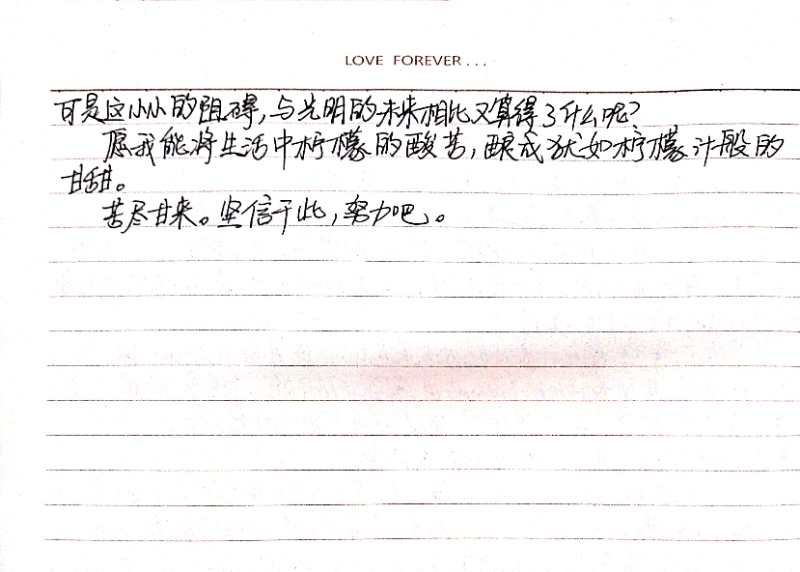 LOVE FOREVER...
可是这小小的阻碍，与光明的未来相比又算得了什么呢？
愿我能将生活中柠檬的酸苦，酿成犹如柠檬汁般的
甘甜。
苦尽甘来。坚信于此，努力吧。